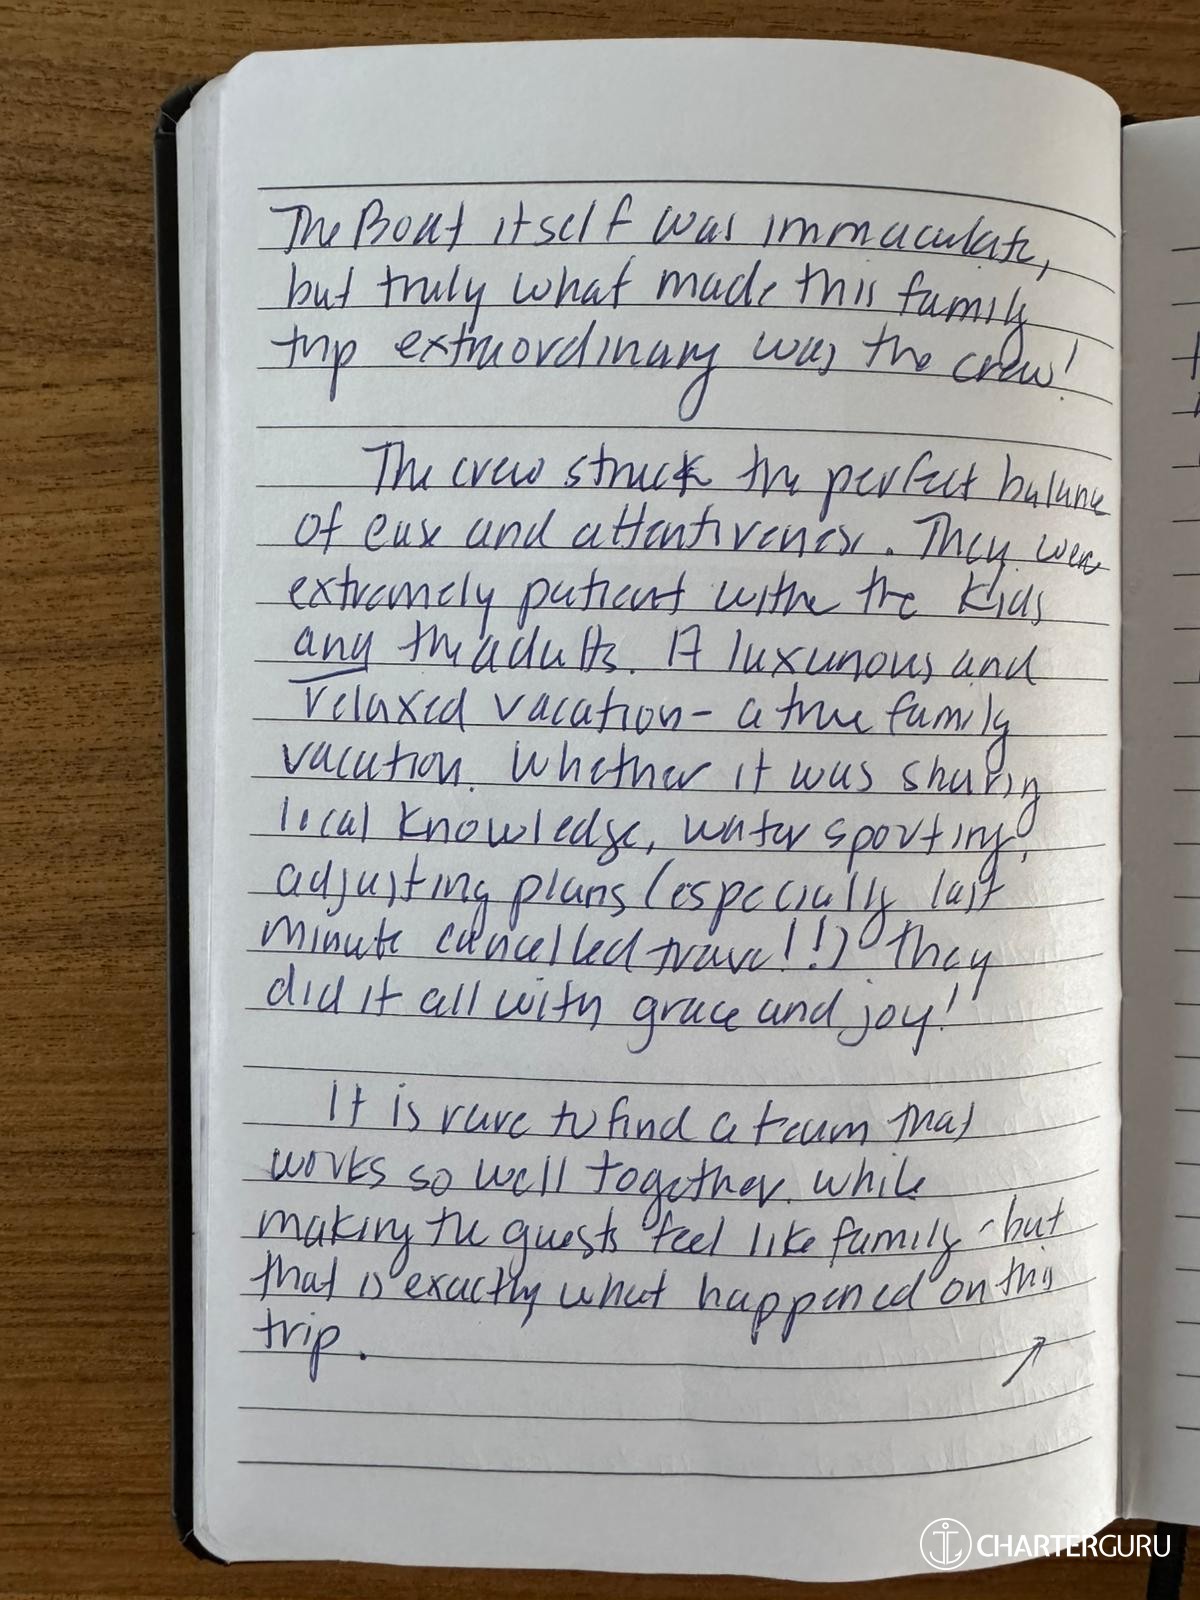 The Boat itself was immaculate,
but truly what made this family
trip extraordinary was the crew!
The crew struck the perfect balance
of ease and attentiveness. They were
extremely patient withe the kids
and the adults. A luxurious and
relaxed vacation - a true family
vacation. Whether it was sharing
local knowledge, water sporting,
adjusting plans (especially last
minute cancelled travel!!) they
did it all with grace and joy!
It is rare to find a team that
works so well together while
making the guests feel like family - but
that is exactly what happened on this
trip.
CHARTERGURU